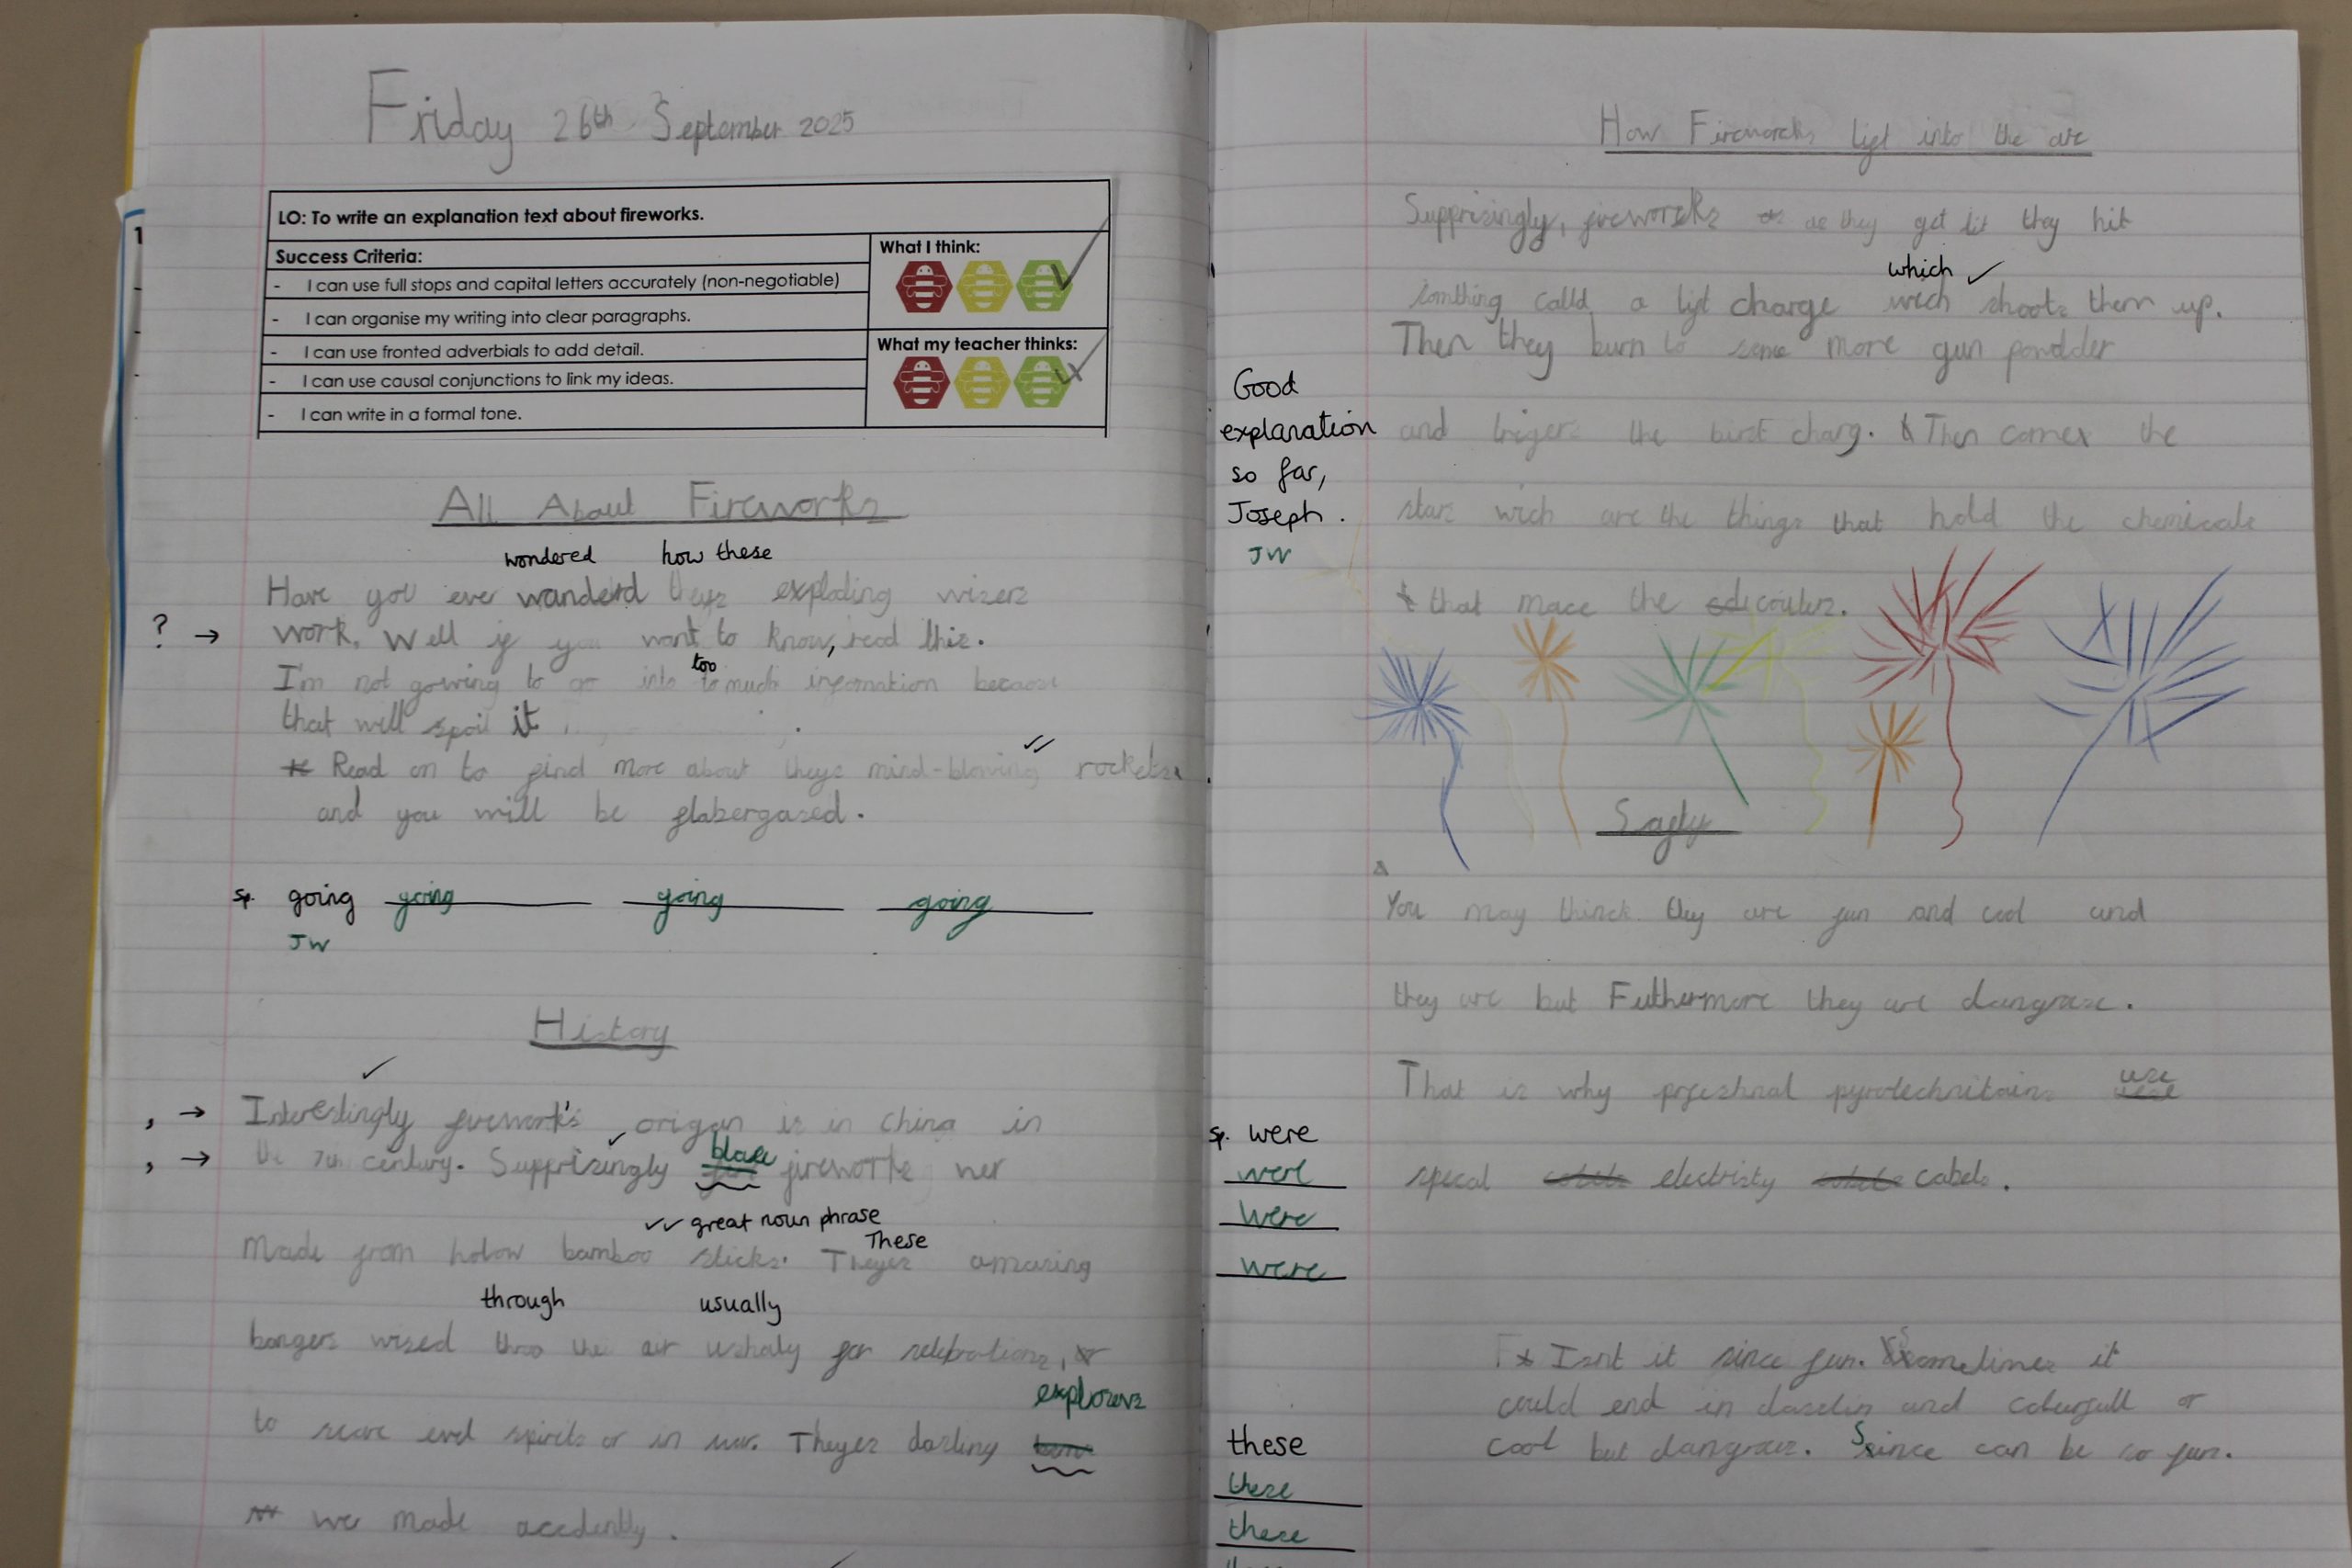 Friday 26th September 2025
LO: To write an explanation text about fireworks.
Success Criteria:
- I can use full stops and capital letters accurately (non-negotiable)
- I can organise my writing into clear paragraphs.
- I can use fronted adverbials to add detail.
- I can use causal conjunctions to link my ideas.
- I can write in a formal tone.
What I think:
What my teacher thinks:
1
All About Fireworks
wondered how these
Have you ever wanderd theys exploding wizers
? → work. Well if you want to know, read this.
too
I'm not gowing to go into to much infomation because
that will spoil it
Read on to find more about theys mind-blowing rockets
and you will be flabergased.
sp. going going going going
JW
History
, → Interestingly firework's origan is in China in
blaze
, → the 7th century. Supprisingly fireworks wer
✓✓ great noun phrase
These
Made from holow bamboo sticks. Theyes amazing
through usually
bangers wized throo the air ushaly for selebrations,
explosers
to scare evel spirits or in war. Theyes dazling
wer made accedently.
How Fireworcks lift into the air
Supprisingly, fireworcks as they get lit they hit
which ✓
somthing calld a lift charge wich shoots them up.
Then they burn to some more gun powdder
and trigers the birst charg. Then comes the
stars wich are the things that hold the chemicals
that mace the coulers.
Good
explanation
so far,
Joseph.
JW
Safty
You may thinck they are fun and cool and
they are but Futhermore they are dangrase.
That is why pofeshnal pyrotechnitains use
specal electristy cabels.
sp. were
were
were
were
Isnt it since fun. Sometimes it
could end in dazelin and colurfull or
cool but dangrous. Since can be so fun.
these
these
these